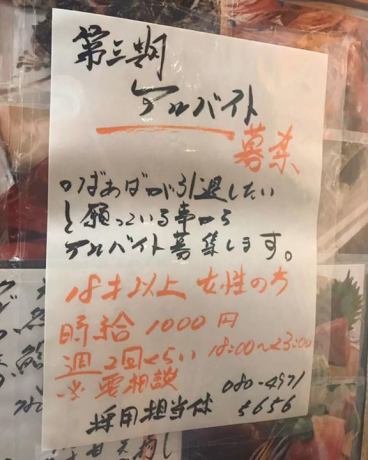 第三期
アルバイト
募集
ばあばが引退したい
と願っている事から
アルバイト募集します。
18才以上 女性のみ
時給 1000円
週2回くらい 18:00〜23:00
※要相談
採用担当 080-4971
5656